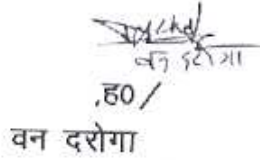 वन दरोगा
,ह0/
वन दरोगा